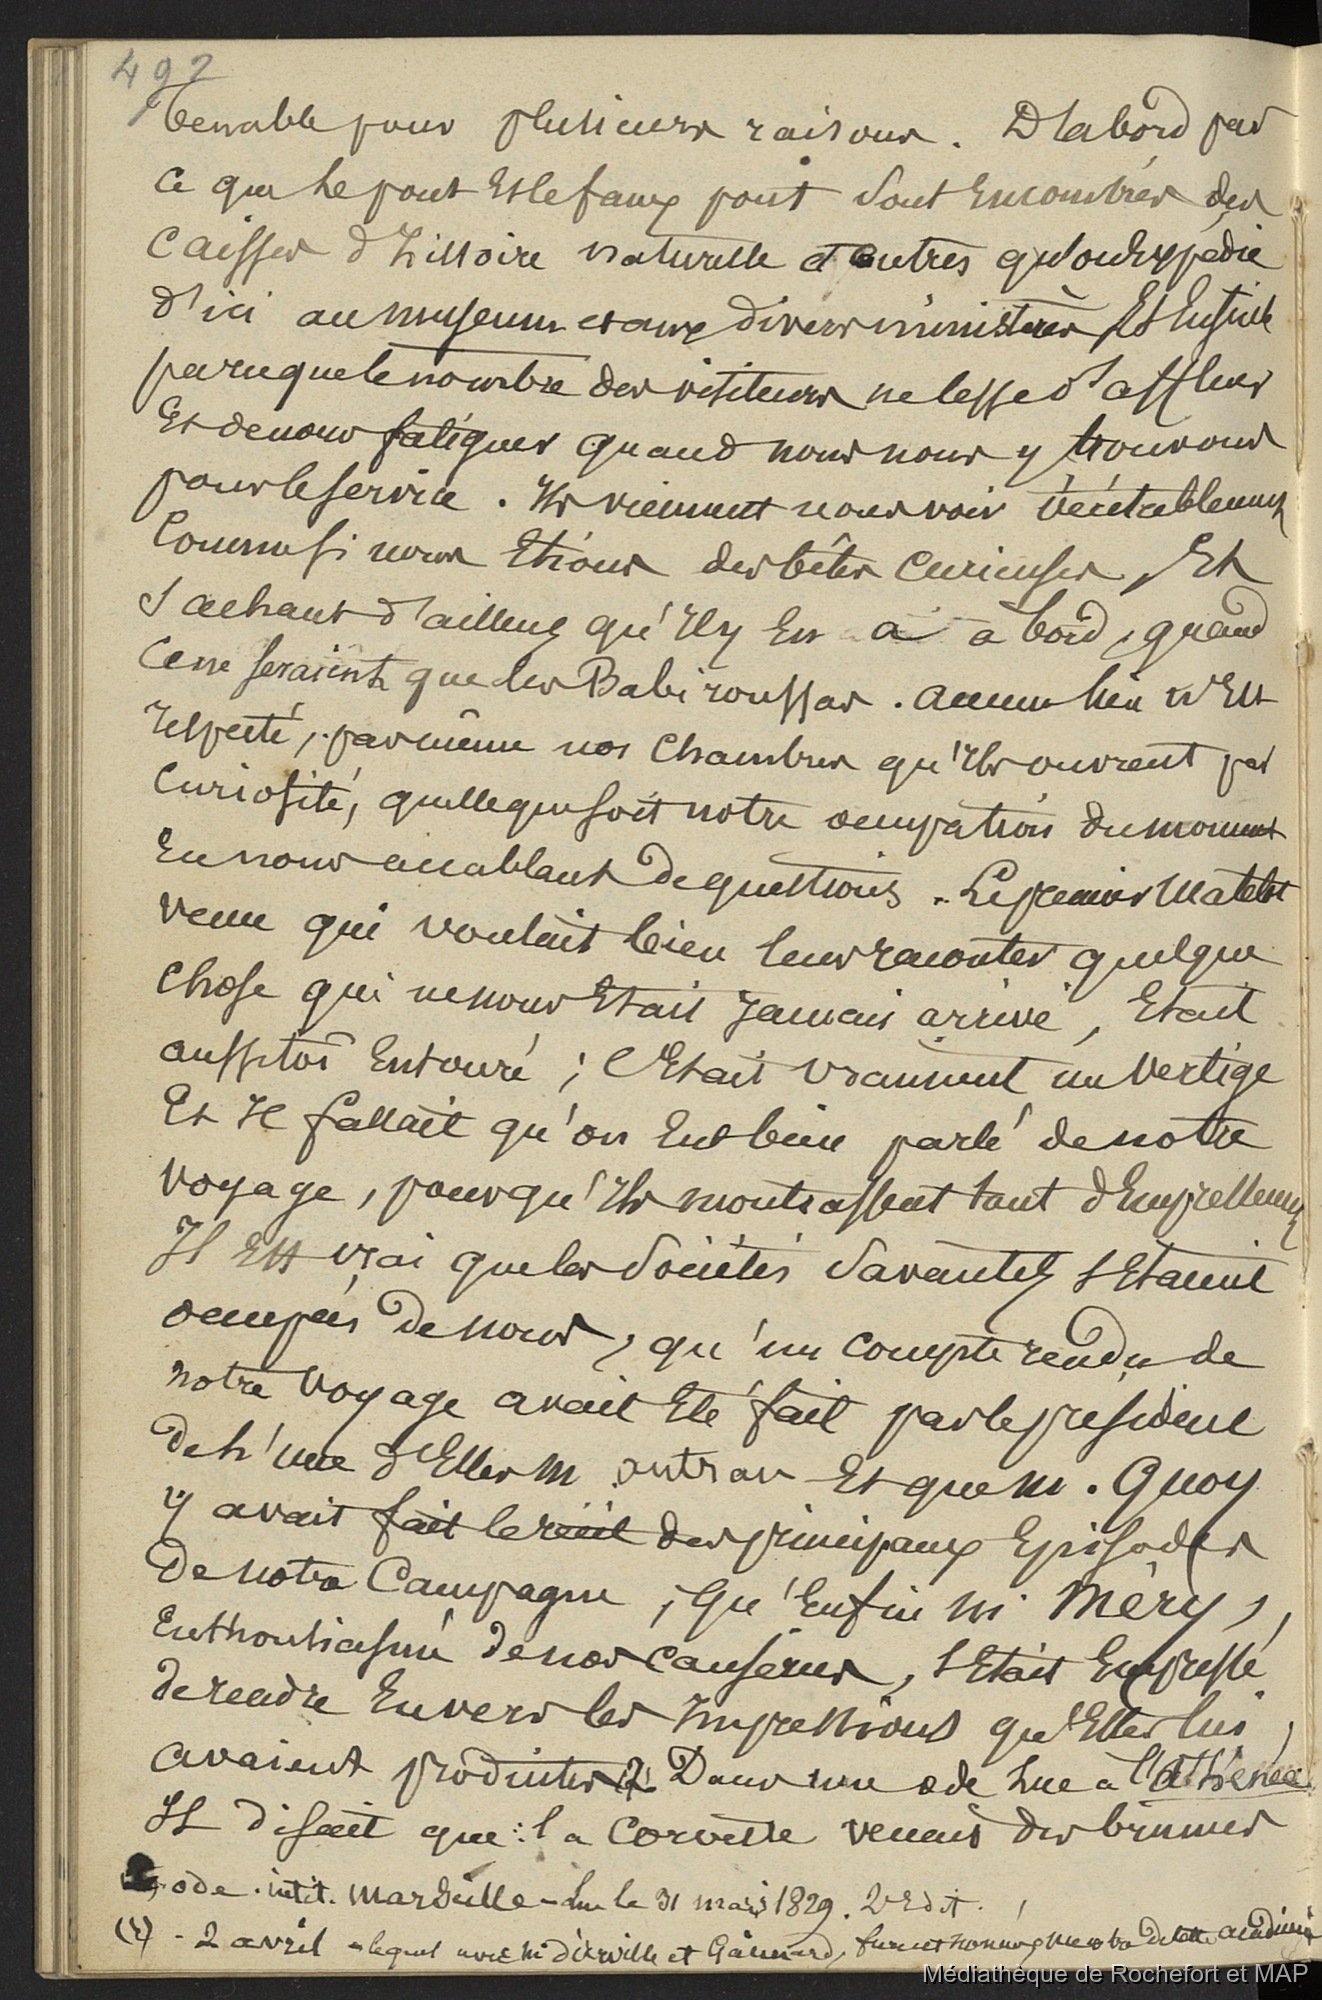 492
tenable pour plusieurs raisons. D'abord par
ce que le pont et le faux pont sont encombrés des
caisses d'histoire naturelle et autres qu'on expédie
d'ici au museum et aux divers ministères, et ensuite
parceque le nombre des visiteurs ne cesse d'affluer
et de nous fatiguer quand nous nous y trouvons
pour le service. Ils viennent nous voir véritablement
comme si nous étions des bêtes curieuses, et
sachant d'ailleurs qu'il y en a à bord, quand
ce ne seraient que les Babiroussas. aucun lieu n'est
respecté, pas même nos chambres qu'ils ouvrent par
curiosité, quelle que soit notre occupation du moment
en nous accablant de questions. Le premier matelot
venu qui voulait bien leur raconter quelque
chose qui ne nous était jamais arrivé, était
aussitôt entouré; c'était vraiment un vertige
et il fallait qu'on eut bien parlé de notre
voyage, pour qu'ils montrassent tant d'empressement
Il est vrai que les sociétés savantes s'étaient
occupées de nous, qu'un compte rendu de
notre voyage avait été fait par le président
de l'une d'elles M. autran et que M. Quoy
y avait fait le récit des principaux épisodes
de notre campagne; qu'enfin M. Méry,
enthousiasmé de nos causeries, s'était empressé
de rendre en vers les impressions qu'elles lui
avaient produites. Dans une ode lue à l'athénée
Il disait que: la corvette venait des brumes
ode. intit. Marseille - lue le 31 mars 1829. 2e Edit.
- 2 avril - lequel avec M. d'urville et Gaimard, furent nommés de cette académie
Médiathèque de Rochefort et MAP